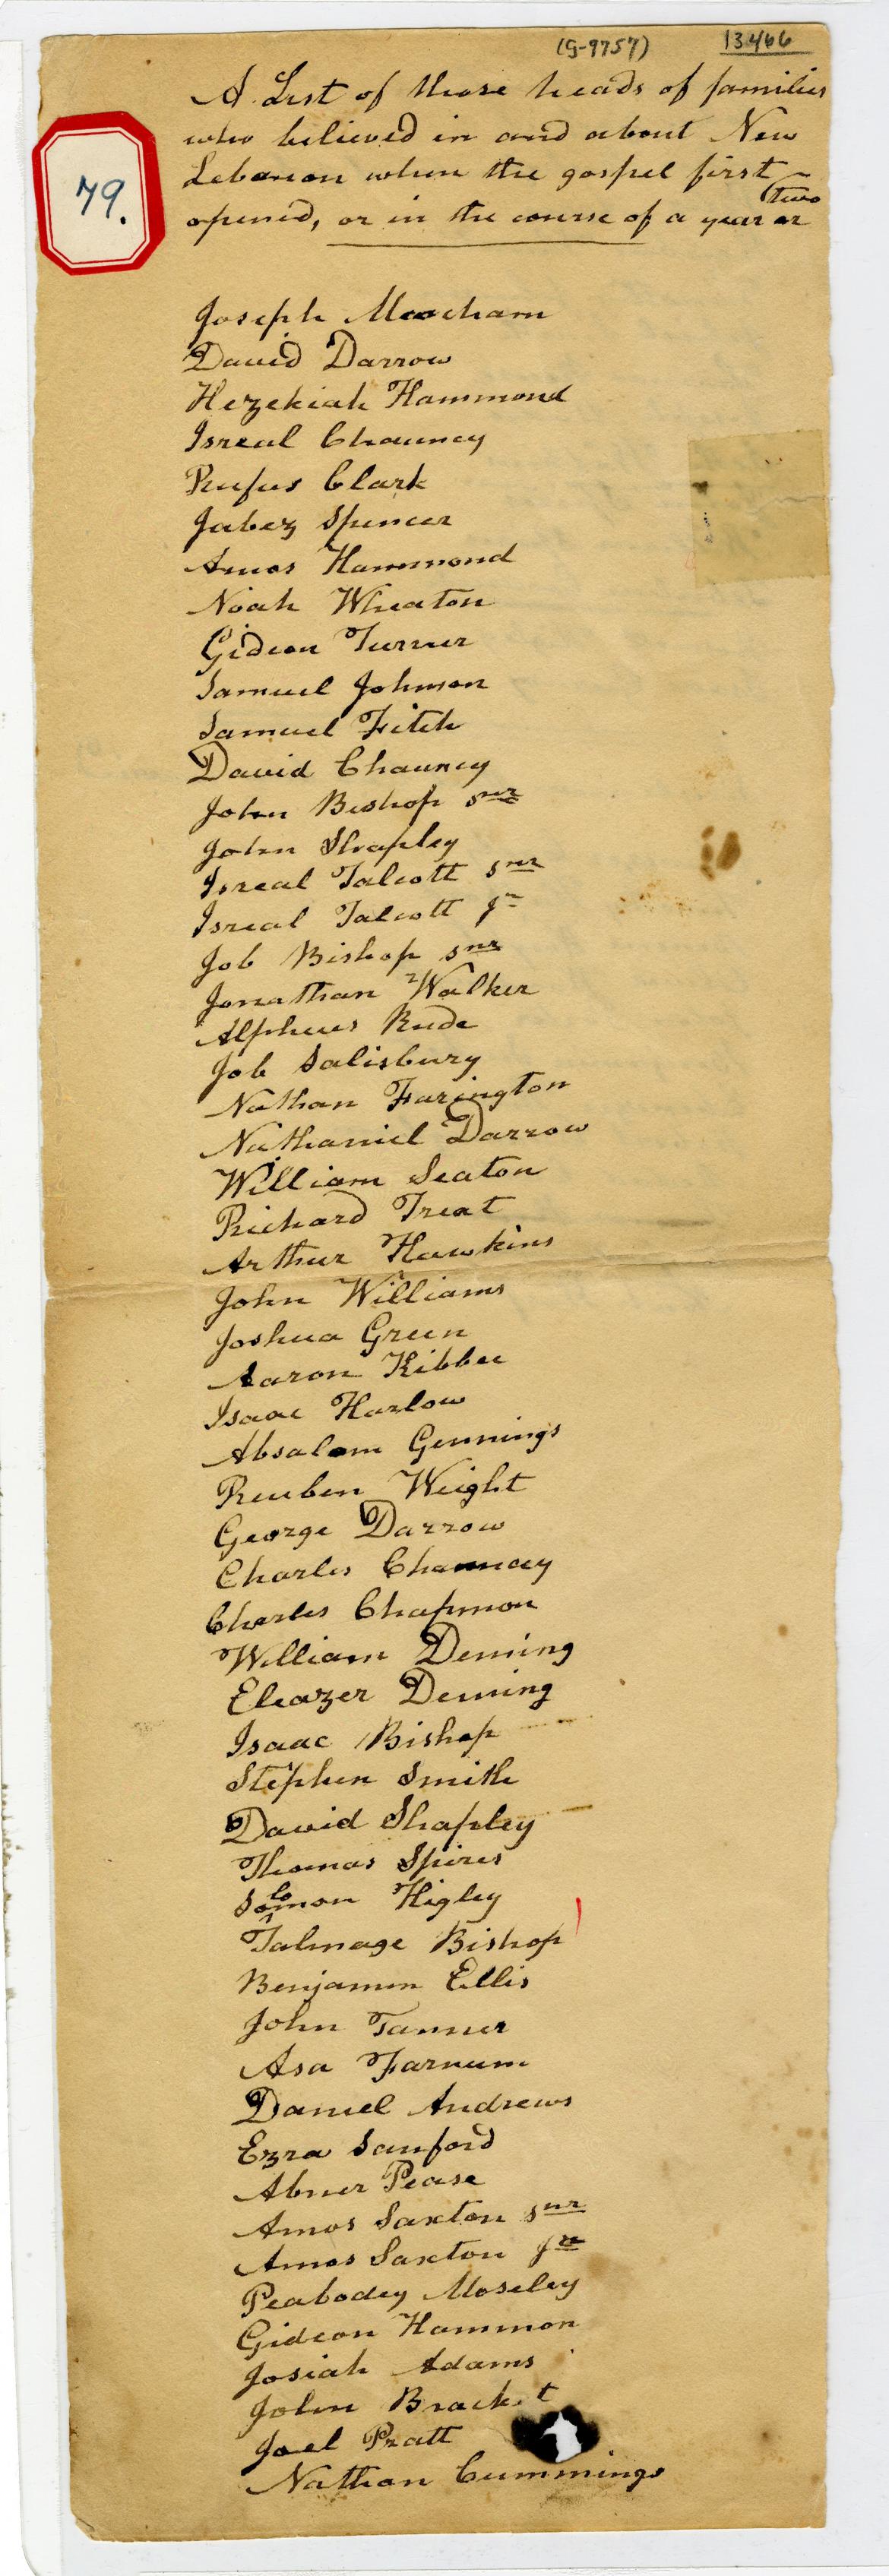 (G-9757) 13466
A List of those heads of families
who believed in and about New
Lebanon when the gospel first
opened, or in the course of a year or two
79.
Joseph Meacham
David Darrow
Hezekiah Hammond
Isreal Chauncy
Rufus Clark
Jabez Spencer
Amos Hammond
Noah Wheaton
Gideon Turner
Samuel Johnson
Samuel Fitch
David Chauncy
John Bishop snr
John Shapley
Isreal Talcott snr
Isreal Talcott Jr
Job Bishop snr
Jonathan Walker
Alpheus Rude
Job Salisbury
Nathan Farington
Nathaniel Darrow
William Seaton
Richard Treat
Arthur Hawkins
John Williams
Joshua Green
Aaron Kibbee
Isaac Harlow
Absalom Gennings
Reuben Wright
George Darrow
Charles Chauncey
Charles Chapmon
William Deming
Eleazer Deming
Isaac Bishop
Stephen Smith
David Shapley
Thomas Spires
Solomon Higley
Talmage Bishop
Benjamin Ellis
John Tanner
Asa Farnum
Daniel Andrews
Ezra Sanford
Abner Pease
Amos Saxton snr
Amos Saxton Jr
Peabodey Moseley
Gideon Hammon
Josiah Adams
John Bracket
Joel Pratt
Nathan Cummings